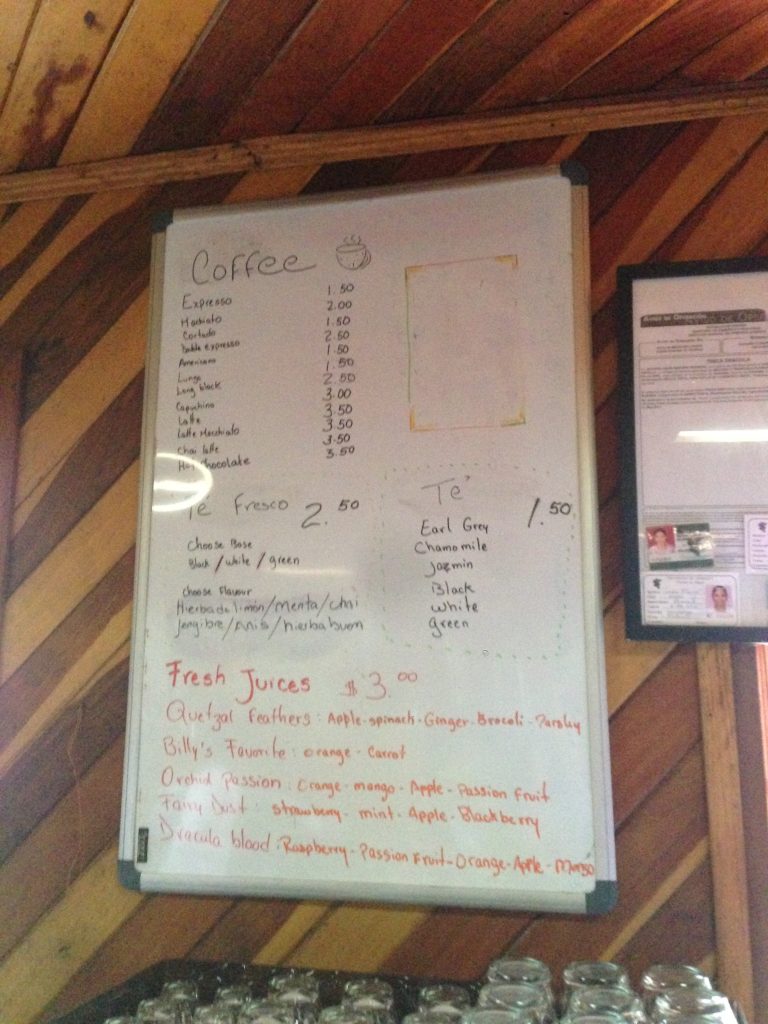 Coffee
Expresso 1.50
Machiato 2.00
Cortado 1.50
Doble expresso 2.50
Americano 1.50
Lungo 1.50
Long black 2.50
Capuchino 3.00
Latte 3.50
Latte Macchiato 3.50
Chai latte 3.50
Hot chocolate 3.50
Te Fresco 2.50
Choose Base
Black / white / green
choose Flavour
Hierba de limón/menta/chai
Jengibre/Anis/hierba buena
Te' 1.50
Earl Grey
Chamomile
Jazmin
Black
white
green
Fresh Juices $3.00
Quetzal feathers: Apple-spinach-Ginger-Brocoli-Parsley
Billy's Favorite: orange-carrot
Orchid Passion: Orange-mango-Apple-Passion fruit
Fairy Dust: strawberry-mint-Apple-Blackberry
Dracula blood: Raspberry-Passion Fruit-Orange-Apple-Mango